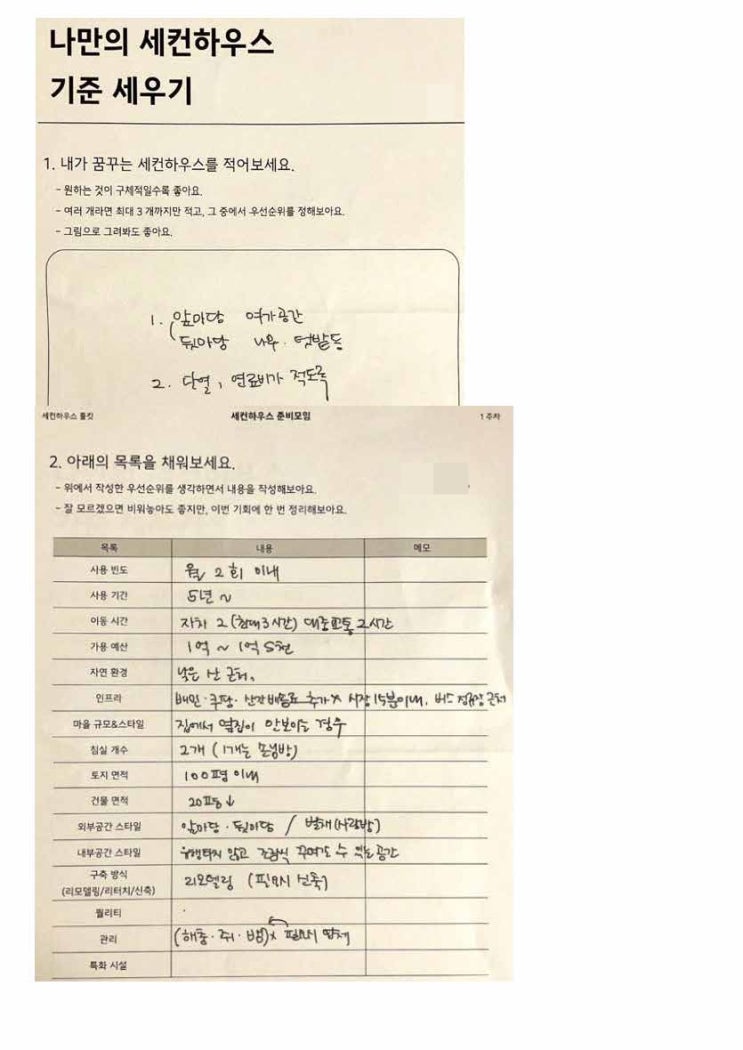 나만의 세컨하우스
기준 세우기
1. 내가 꿈꾸는 세컨하우스를 적어보세요.
- 원하는 것이 구체적일수록 좋아요.
- 여러 개라면 최대 3개까지만 적고, 그 중에서 우선순위를 정해보아요.
- 그림으로 그려봐도 좋아요.
1. 앞마당 여가공간
뒷마당 나무 · 텃밭 등
2. 단열, 연료비가 적도록
세컨하우스 툴킷 세컨하우스 준비모임 1주차
2. 아래의 목록을 채워보세요.
- 위에서 작성한 우선순위를 생각하면서 내용을 작성해보아요.
- 잘 모르겠으면 비워놓아도 좋지만, 이번 기회에 한 번 정리해보아요.
목록 내용 메모
사용 빈도 월 2회 이내
사용 기간 5년 ~
이동 시간 자차 2 (최대 3시간) 대중교통 2시간
가용 예산 1억 ~ 1억 5천
자연 환경 낮은 산 근처.
인프라 배민 · 쿠팡 · 산간배송료 추가 x 시장 15분이내, 버스 정류장 근처
마을 규모&스타일 집에서 옆집이 안보이는 경우
침실 개수 2개 (1개는 손님방)
토지 면적 100평 이내
건물 면적 20평 ↓
외부공간 스타일 앞마당 · 뒷마당 / 별채(사랑방)
내부공간 스타일 유행타지 않고 조금씩 꾸며갈 수 있는 공간
구축 방식 리모델링 (필요시 신축)
(리모델링/리터치/신축)
퀄리티 .
관리 (해충 · 쥐 · 뱀)x 필요시 업체
특화 시설